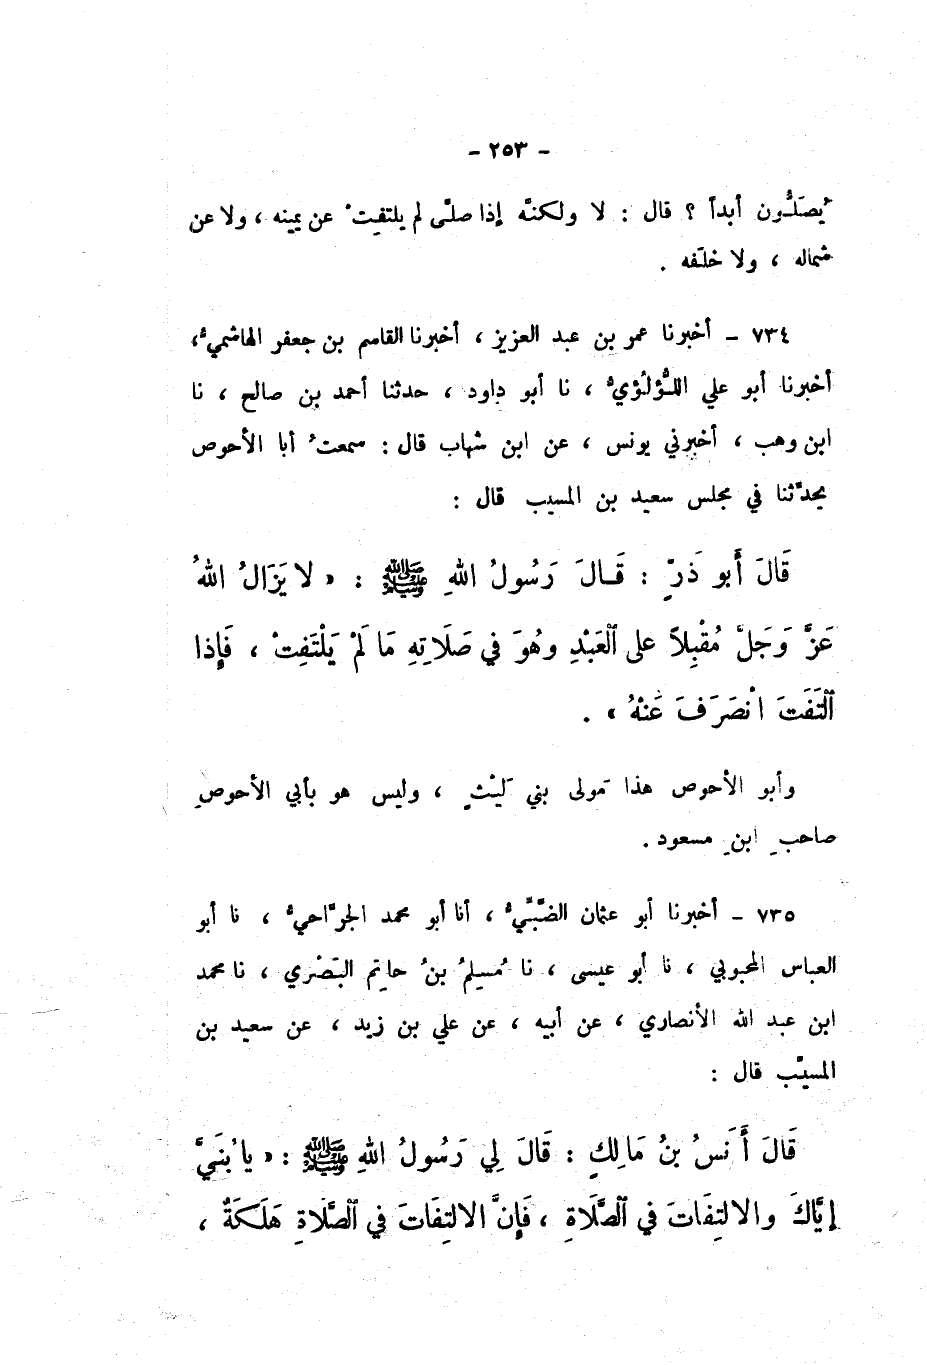 - ٢٥٣ -
يُصَلُّون أبداً ؟ قال : لا ولكنَّه إذا صلَّى لم يلتفِتْ عن يمينه ، ولا عن
شماله ، ولا خلفه .
٧٣٤ - أخبرنا عمر بن عبد العزيز ، أخبرنا القاسم بن جعفر الهاشميُّ ،
أخبرنا أبو علي اللُّؤلُؤيُّ ، نا أبو داود ، حدثنا أحمد بن صالح ، نا
ابن وهب ، أخبرني يونس ، عن ابن شهاب قال : سمعتُ أبا الأحوص
يحدِّثنا في مجلس سعيد بن المسيب قال :
قَالَ أَبو ذَرٍّ : قَالَ رَسُولُ اللهِ ﷺ : « لا يَزَالُ اللهُ
عَزَّ وَجَلَّ مُقْبِلاً على ٱلعَبْدِ وهُوَ في صَلَاتِهِ مَا لَمْ يَلْتَفِتْ ، فَإِذا
ٱلتَفَتَ انْصَرَفَ عَنْهُ » .
وأبو الأحوص هذا مَولى بني لَيْثٍ ، وليس هو بأبي الأحوصِ
صاحبِ ابنِ مسعود .
٧٣٥ - أخبرنا أبو عثمان الضَّبِّيُّ ، أنا أبو محمد الجرَّاحيُّ ، نا أبو
العباس المحبوبي ، نا أبو عيسى ، نا مُسلِمُ بنُ حاتِم البَصْري ، نا محمد
ابن عبد الله الأنصاري ، عن أبيه ، عن علي بن زيد ، عن سعيد بن
المسيَّب قال :
قَالَ أَنَسُ بنُ مَالِكٍ : قَالَ لِي رَسُولُ اللهِ ﷺ : « يا بُنَيَّ
إِيَّاكَ والالتِفَاتَ في ٱلصَّلَاةِ ، فَإِنَّ الالتِفَاتَ في ٱلصَّلاةِ هَلَكَةٌ ،